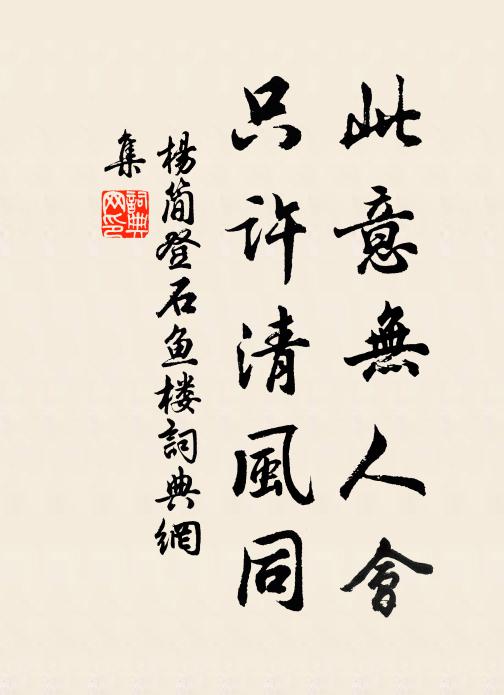 此意無人會
只許清風同
楊简登石鱼楼詞典網
集
詞典
网印